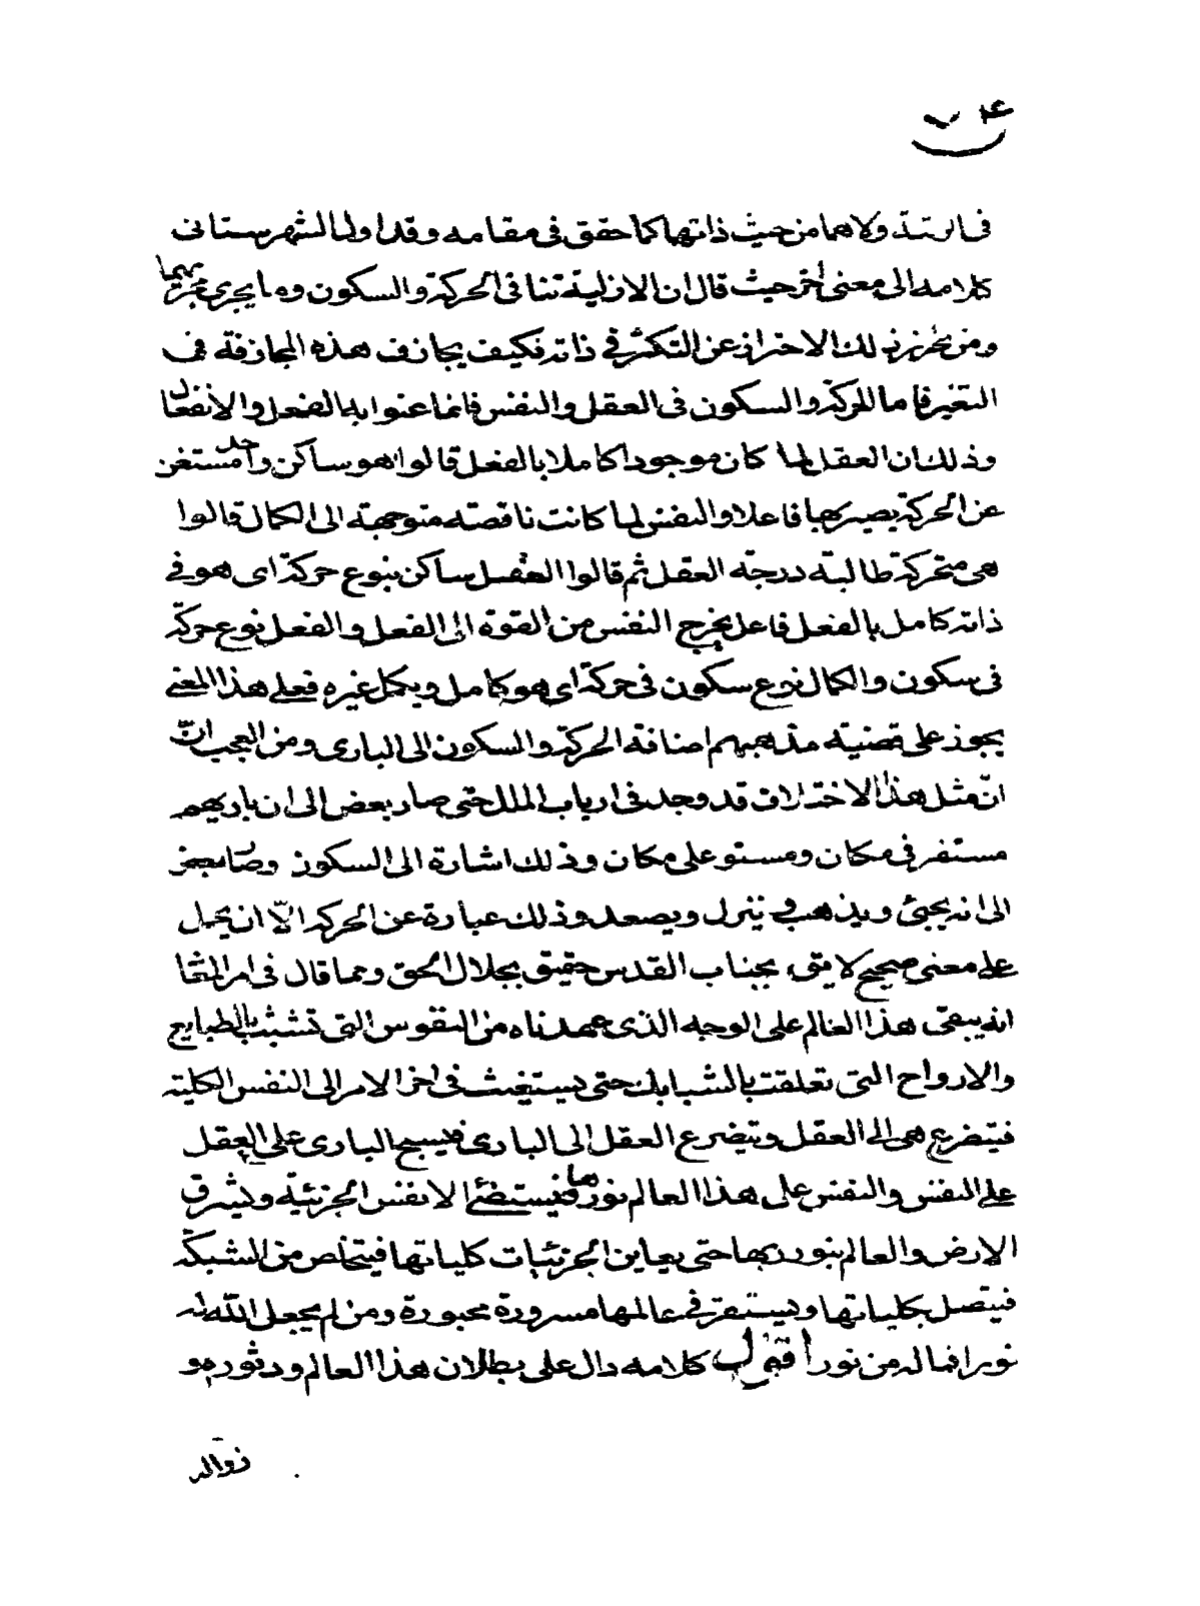 فى مرتبة ولا هما من حيث ذاتهما كما حقق فى مقامه وقد اول الشهرستانى
كلامه الى معنى اخر حيث قال ان الازلية تنافى الحركة والسكون وما يجرى مجريهما
ومن يحترز ذلك الاحتراز عن التكثر فى ذاته فكيف يجازف هذه المجازفة فى
التغير فاما الحركة والسكون فى العقل والنفس فانما عنوا به الفعل والانفعال
وذلك ان العقل لما كان موجودا كاملا بالفعل قالوا هو ساكن واحد مستغن
عن الحركة يصير بها فاعلا والنفس لما كانت ناقصته متوجهة الى الكمال قالوا
هى متحركة طالبته درجه العقل ثم قالوا العقل ساكن بنوع حركة اى هو فى
ذاته كامل بالفعل فاعل يخرج النفس من القوة الى الفعل والفعل نوع حركة
فى سكون والكمال نوع سكون فى حركة اى هو كامل ويكمل غيره فعلى هذا المعنى
يجوز على قضيته مذهبهم اضافة الحركة والسكون الى البارى ومن العجب ان
ان مثل هذا الاختلاف قد وجد فى ارباب الملل حتى صار بعض الى ان باريهم
مستقر فى مكان ومستو على مكان وذلك اشارة الى السكون وصار بعض
الى انه يجيئ ويذهب و ينزل ويصعد وذلك عبارة عن الحركه الا ان يحمل
على معنى صحيح لايق بجناب القدس حقيق بجلال الحق ومما قال فى امر المعاد
انه يبقى هذا العالم على الوجه الذى عهدناه من النفوس التى تشبثت بالطبايع
والارواح التى تعلقت بالشبابك حتى يستغيث فى اخر الامر الى النفس الكليته
فيتضرع هى الى العقل ويتضرع العقل الى البارى فيسيح البارى على العقل
على النفس والنفس على هذا العالم نورها فيستضئ الانفس الجزئية ويشرق
الارض والعالم بنور ربها حتى يعاين الجزئيات كلياتها فيتخلص من الشبكة
فيتصل بكلياتها ويستقر فى عالمها مسرورة محبورة ومن لم يجعل الله له
نورا فما له من نور اقول كلامه دال على بطلان هذا العالم ودثوره و
زواله